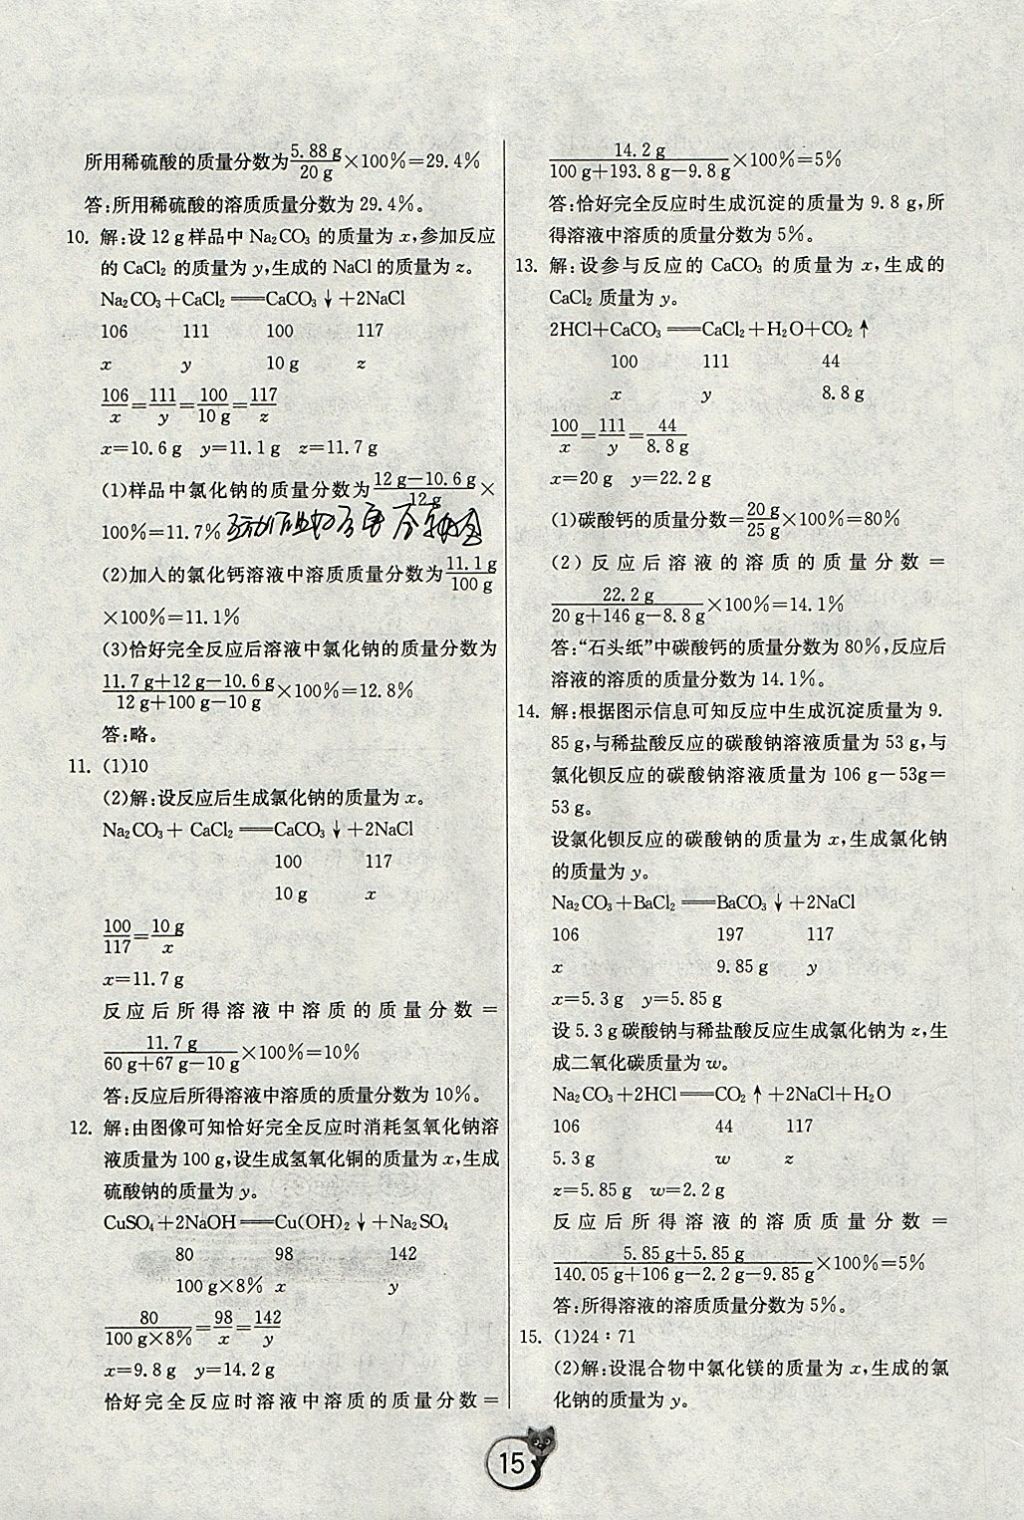 所用稀硫酸的质量分数为5.88 g/20 g×100%=29.4%
答:所用稀硫酸的溶质质量分数为29.4%。
10. 解:设12 g样品中Na₂CO₃的质量为x,参加反应
的CaCl₂的质量为y,生成的NaCl的质量为z。
Na₂CO₃+CaCl₂══CaCO₃↓+2NaCl
106 111 100 117
x y 10 g z
106/x=111/y=100/10 g=117/z
x=10.6 g y=11.1 g z=11.7 g
(1)样品中氯化钠的质量分数为12 g−10.6 g/12 g×
100%=11.7%
(2)加人的氯化钙溶液中溶质质量分数为11.1 g/100 g
×100%=11.1%
(3)恰好完全反应后溶液中氯化钠的质量分数为
11.7 g+12 g−10.6 g/12 g+100 g−10 g×100%=12.8%
答:略。
11. (1)10
(2)解:设反应后生成氯化钠的质量为x。
Na₂CO₃+ CaCl₂══CaCO₃↓+2NaCl
100 117
10 g x
100/117=10 g/x
x=11.7 g
反应后所得溶液中溶质的质量分数=
11.7 g/60 g+67 g−10 g×100%=10%
答:反应后所得溶液中溶质的质量分数为10%。
12. 解:由图像可知恰好完全反应时消耗氢氧化钠溶
液质量为100 g,设生成氢氧化铜的质量为x,生成
硫酸钠的质量为y。
CuSO₄+2NaOH══Cu(OH)₂↓+Na₂SO₄
80 98 142
100 g×8% x y
80/100 g×8%=98/x=142/y
x=9.8 g y=14.2 g
恰好完全反应时溶液中溶质的质量分数=
14.2 g/100 g+193.8 g−9.8 g×100%=5%
答:恰好完全反应时生成沉淀的质量为9.8 g,所
得溶液中溶质的质量分数为5%。
13. 解:设参与反应的CaCO₃的质量为x,生成的
CaCl₂质量为y。
2HCl+CaCO₃══CaCl₂+H₂O+CO₂↑
100 111 44
x y 8.8 g
100/x=111/y=44/8.8 g
x=20 g y=22.2 g
(1)碳酸钙的质量分数=20 g/25 g×100%=80%
(2)反应后溶液的溶质的质量分数=
22.2 g/20 g+146 g−8.8 g×100%=14.1%
答:“石头纸”中碳酸钙的质量分数为80%,反应后
溶液的溶质的质量分数为14.1%。
14. 解:根据图示信息可知反应中生成沉淀质量为9.
85 g,与稀盐酸反应的碳酸钠溶液质量为53 g,与
氯化钡反应的碳酸钠溶液质量为106 g−53g=
53 g。
设氯化钡反应的碳酸钠的质量为x,生成氯化钠
的质量为y。
Na₂CO₃+BaCl₂══BaCO₃↓+2NaCl
106 197 117
x 9.85 g y
x=5.3 g y=5.85 g
设5.3 g碳酸钠与稀盐酸反应生成氯化钠为z,生
成二氧化碳质量为w。
Na₂CO₃+2HCl══CO₂↑+2NaCl+H₂O
106 44 117
5.3 g w z
z=5.85 g w=2.2 g
反应后所得溶液的溶质质量分数=
5.85 g+5.85 g/140.05 g+106 g−2.2 g−9.85 g×100%=5%
答:所得溶液的溶质质量分数为5%。
15. (1)24∶71
(2)解:设混合物中氯化镁的质量为x,生成的氯
化钠的质量为y。
15